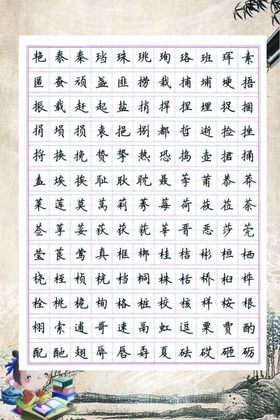 艳 泰 秦 珰 珠 珧 珣 珞 班 珲 素
匿 蚕 顽 盏 匪 捞 栽 捕 埔 埂 捂
振 载 赶 起 盐 捎 捍 捏 埋 捉 捆
捐 埙 损 袁 挹 捌 都 哲 逝 捡 挫
捋 换 挽 贽 挚 热 恐 捣 壶 捃 捅
盍 埃 挨 耻 耿 耽 聂 莩 莆 恭 莽
莱 莲 莫 莴 莉 莠 莓 荷 莜 莅 荼
莶 莩 荽 获 莸 荻 莘 晋 恶 莎 莞
莹 莨 莺 真 框 梆 桂 桔 栲 桓 栖
桡 桎 桢 桄 档 桐 株 栝 桥 桕 桦
栓 桃 桅 栒 格 桩 校 核 样 桉 根
栩 索 逋 哥 速 鬲 虹 逗 栗 贾 酌
配 酏 翅 辱 唇 孬 夏 砝 砹 砸 砺